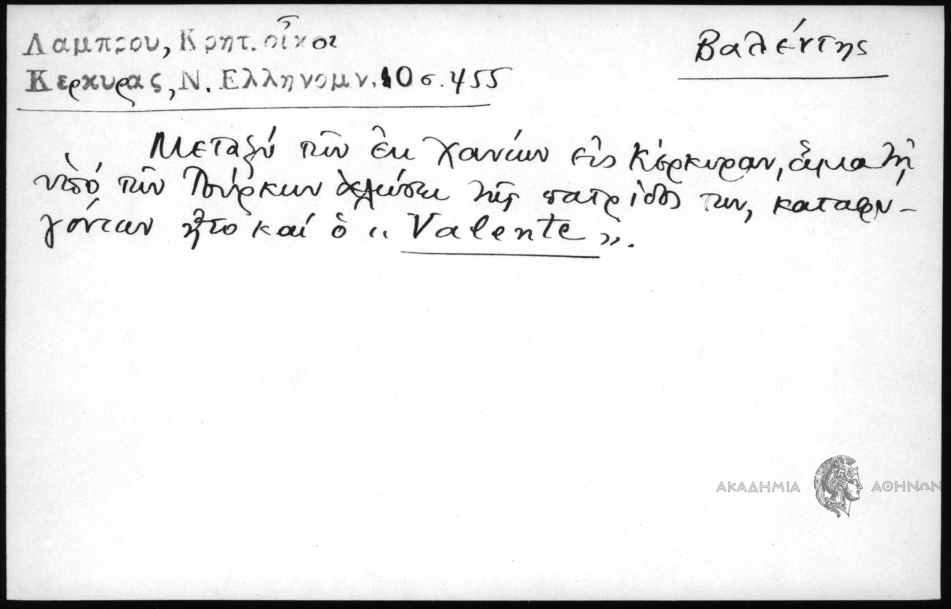 Λαμπρου, Κρητ. οἶκοι
Βαλέντης
Κερκυρας, Ν. Ελληνομν. 10 σ. 455
Μεταξύ τῶν ἐκ Χανίων εἰς Κέρκυραν, ἅμα τῇ
ὑπό τῶν Τούρκων ἁλώσει τῆς πατρίδος των, καταφυ-
γόντων ἦτο καί ὁ « Valente ».
ΑΚΑΔΗΜΙΑ ΑΘΗΝΩΝ